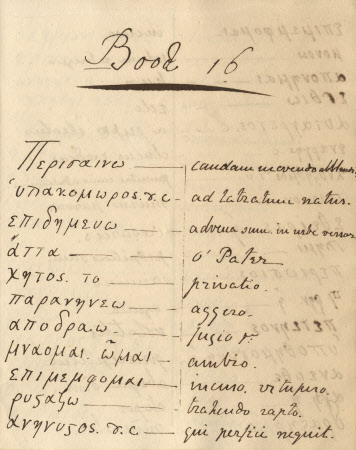 Book 16
Περισαινω — caudam movendo abland.
ὑπακομωρος. ὁ. — ad latratum natus.
επιδημευω — advena sum. in urbe versor
ἀττα — o' Pater
χητος. το — privatio.
παρανηνεω — aggero.
αποδραω — fugio
μναομαι. ῶμαι — ambio.
επιμεμφομαι — incuso. vitupero.
ρυσαζω — trahendo rapto.
ανηνυσος. — qui perfici nequit.